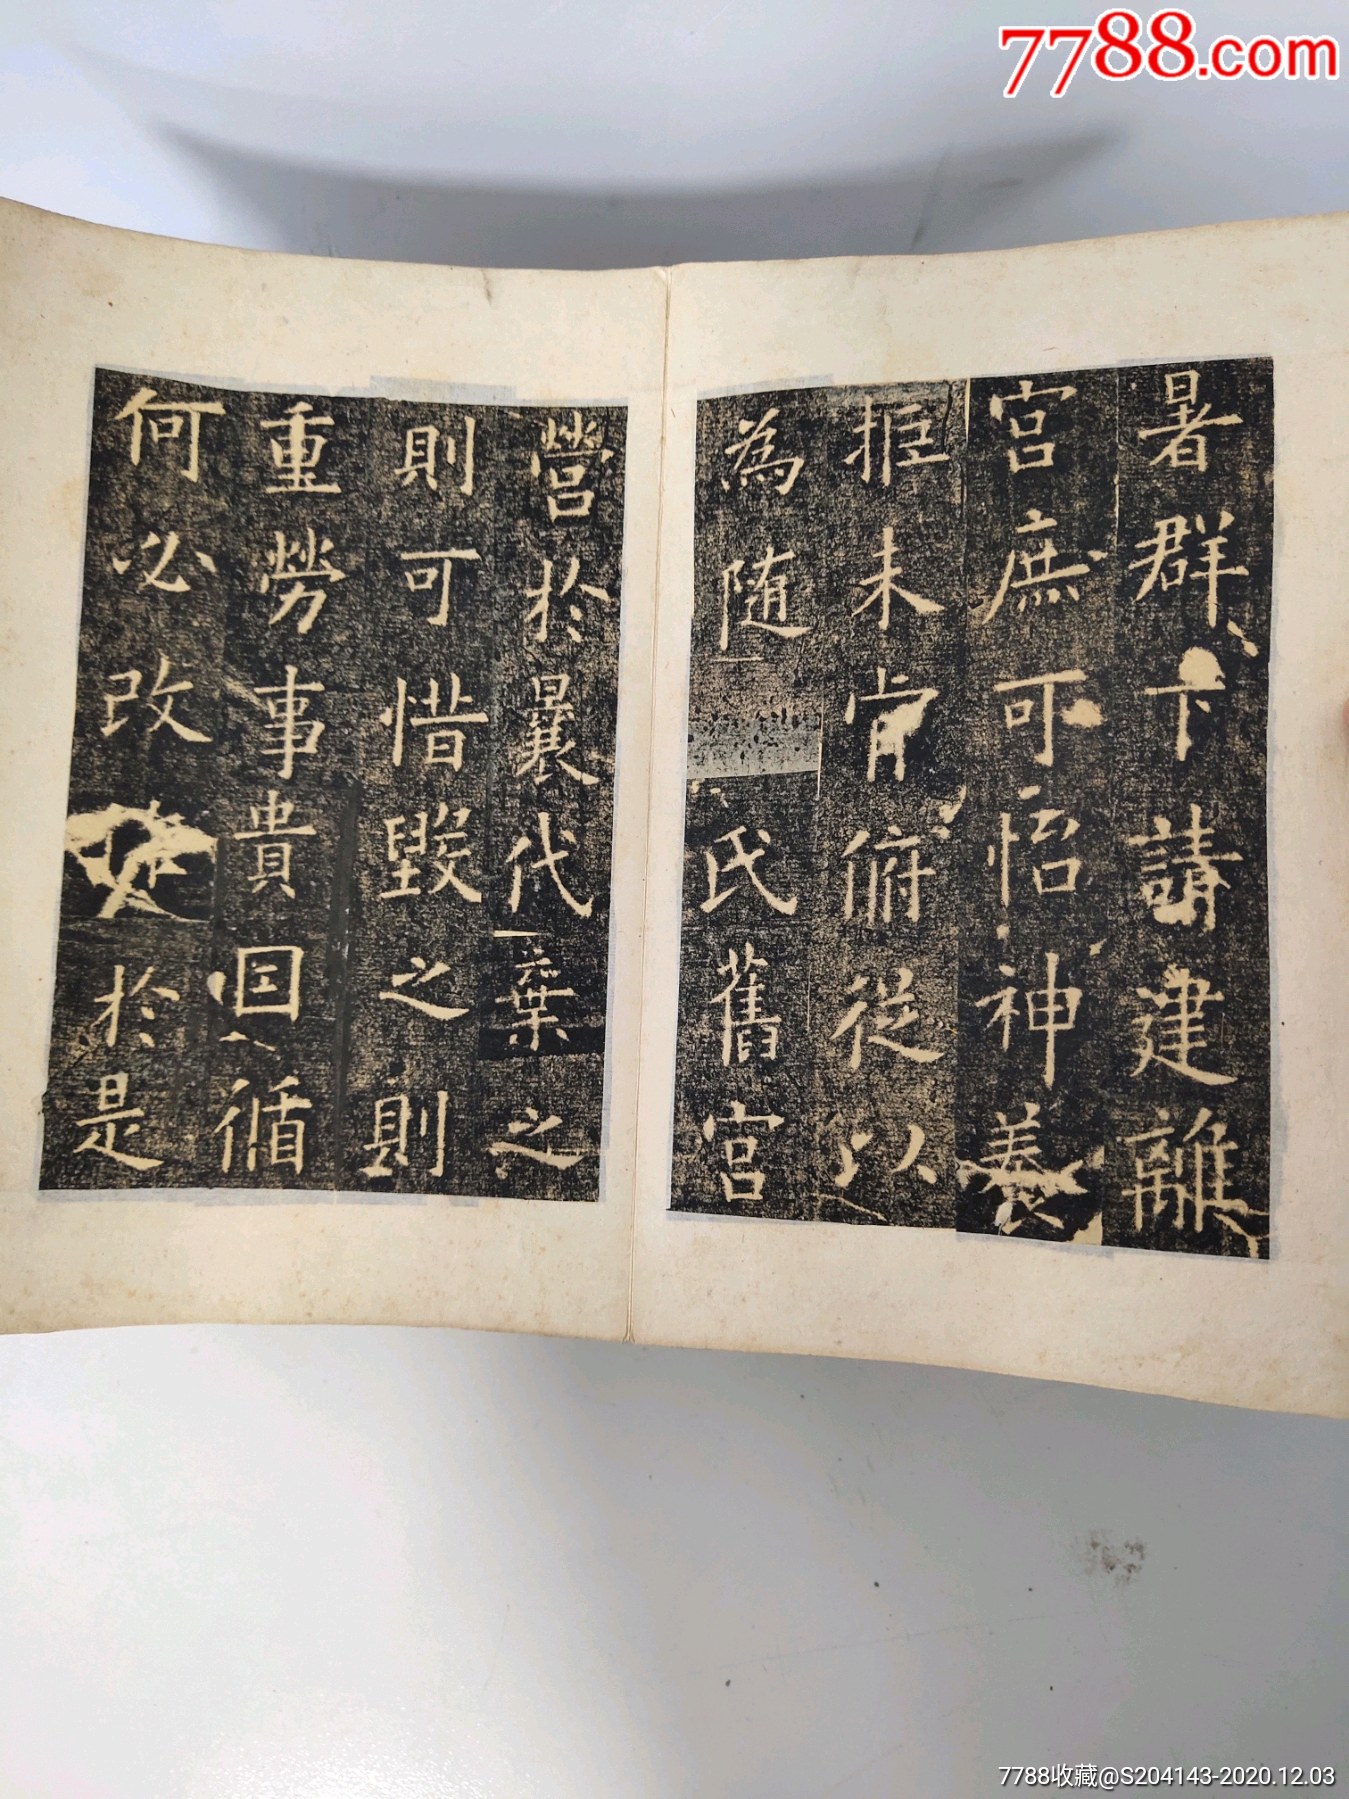 7788.com
暑群下請建離
宮庶可怡神養
拒未肯俯從以
為隨氏舊宮
營於曩代棄之
則可惜毀之則
重勞事貴因循
何必改作於是
7788收藏@S204143-2020.12.03